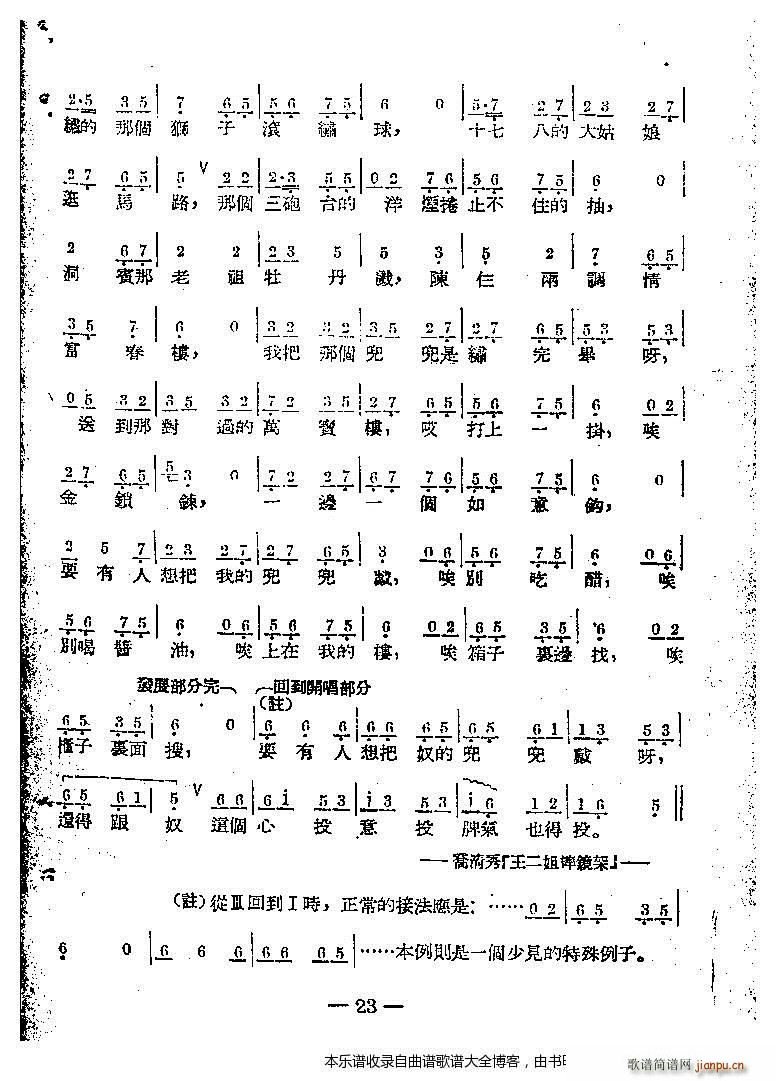 2·5 35 7 65 56 75 6 0 5·7 27 23 27
繡的 那個 獅 子 滾 繡 球， 十七 八的 大姑 娘
27 65 5 V 22 2·3 55 02 76 56 75 6 0
逛 馬 路， 那個 三砲 台的 洋 煙捲 止不 住的 抽，
2 67 2 2 23 5 5 3 5 2 7 65
洞 賓那 老 祖 牡 丹 戲， 陳 仨 兩 調 情
35 7 6 0 32 32 35 27 27 65 53 53
富 春 樓， 我把 那個 兜 兜是 繡 完 畢 呀，
05 32 35 32 72 35 27 65 56 75 6 02
送 到那 對 過的 萬 寶 樓， 哎 打上 一 掛， 唉
27 65 5 3 0 72 27 67 76 56 75 6 0
金 鎖 鍊， 一 邊 一 個 如 意 鈎，
2 5 7 23 27 27 65 3 06 56 75 6 06
要 有 人 想把 我的 兜 兜 敲， 唉 別 吃 醋， 唉
56 75 6 06 56 75 6 02 65 35 6 06
別喝 醬 油， 唉 上在 我的 樓， 唉 箱子 裏邊 找， 唉
發展部分完 回到開唱部分
(註)
65 35 6 0 6 6 6 66 65 65 61 13 53
櫃子 裏面 搜， 要 有 人 想把 奴的 兜 兜 敲 呀，
65 61 5 V 66 6i 53 i3 53 i6 12 16 5
還得 跟 奴 這個 心 投 意 投 脾氣 也得 投。
——喬清秀『王二姐摔鏡架』——
(註)從Ⅲ回到Ⅰ時，正常的接法應是：……02 65 35
6 0 6 6 6 66 65 ……本例則是一個少見的特殊例子。
— 23 —
本乐谱收录自曲谱歌谱大全博客，由书
歌谱简谱网
jianpu.cn